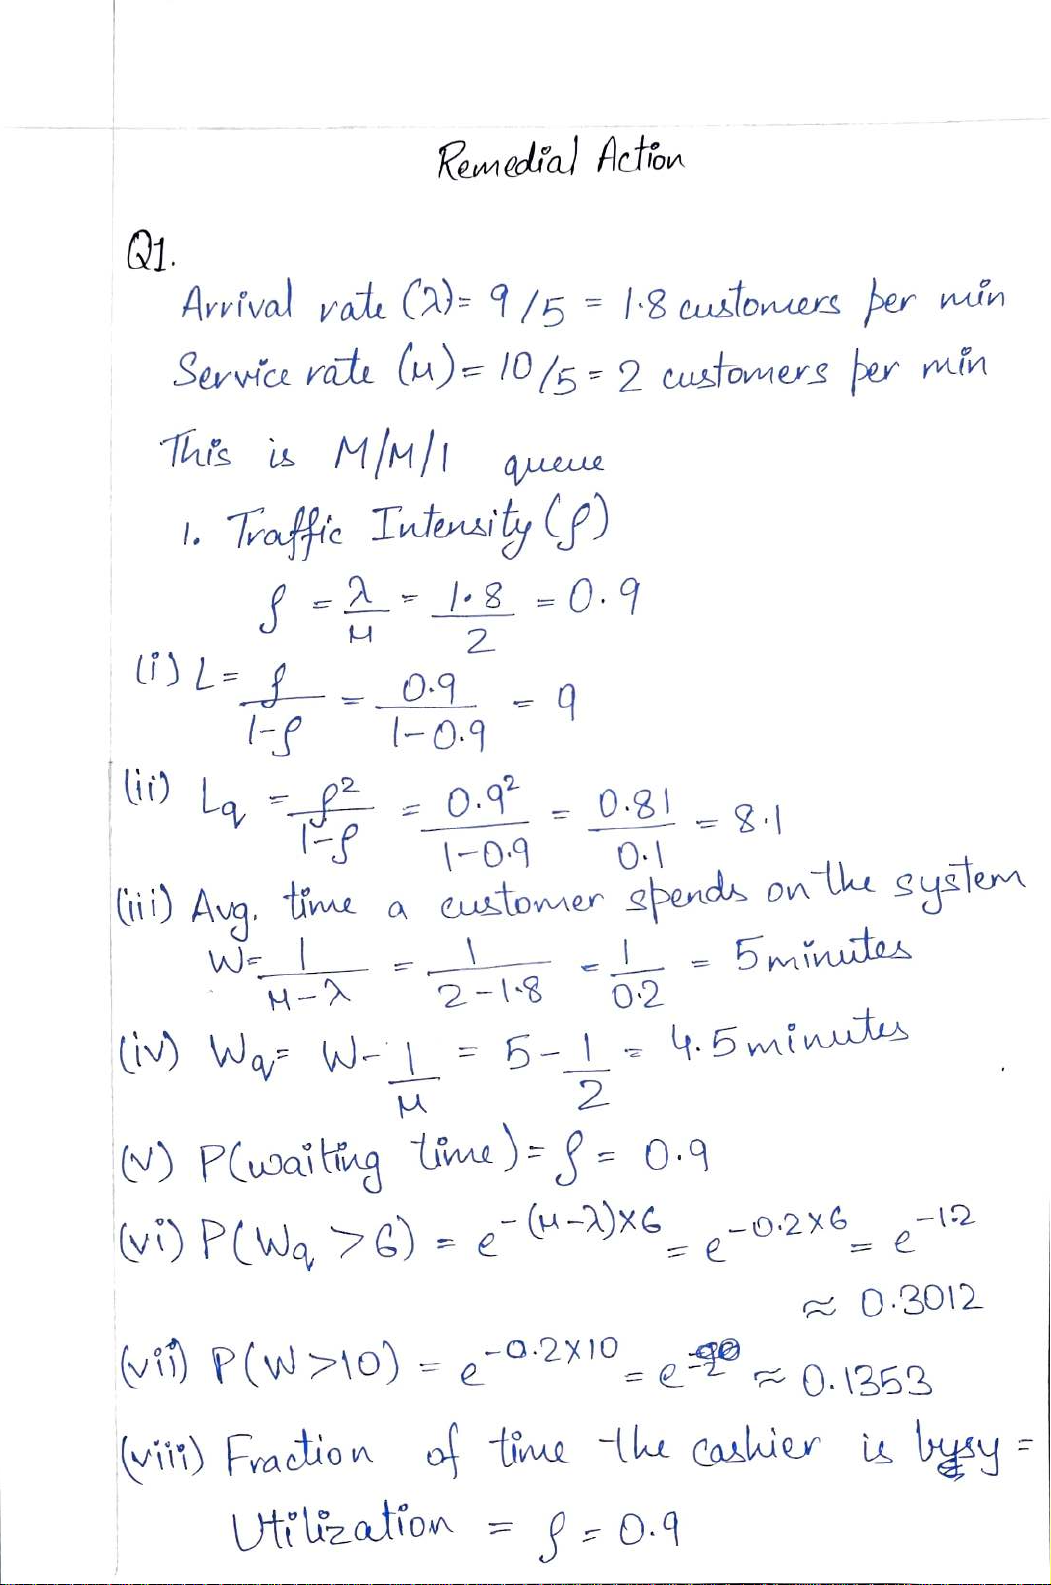 Remedial Action
Q1.
Arrival rate (λ) = 9/5 = 1.8 customers per min
Service rate (μ) = 10/5 = 2 customers per min
This is M/M/1 queue
1. Traffic Intensity (ρ)
ρ = λ/μ = 1.8/2 = 0.9
(i) L = ρ/(1-ρ) = 0.9/(1-0.9) = 9
(ii) Lq = ρ²/(1-ρ) = 0.9²/(1-0.9) = 0.81/0.1 = 8.1
(iii) Avg. time a customer spends on the system
W = 1/(μ-λ) = 1/(2-1.8) = 1/0.2 = 5 minutes
(iv) Wq = W - 1/μ = 5 - 1/2 = 4.5 minutes
(v) P(waiting time) = ρ = 0.9
(vi) P(Wq > 6) = e^-(μ-λ)×6 = e^-0.2×6 = e^-1.2
≈ 0.3012
(vii) P(W > 10) = e^-0.2×10 = e^-2 ≈ 0.1353
(viii) Fraction of time the cashier is busy =
Utilization = ρ = 0.9